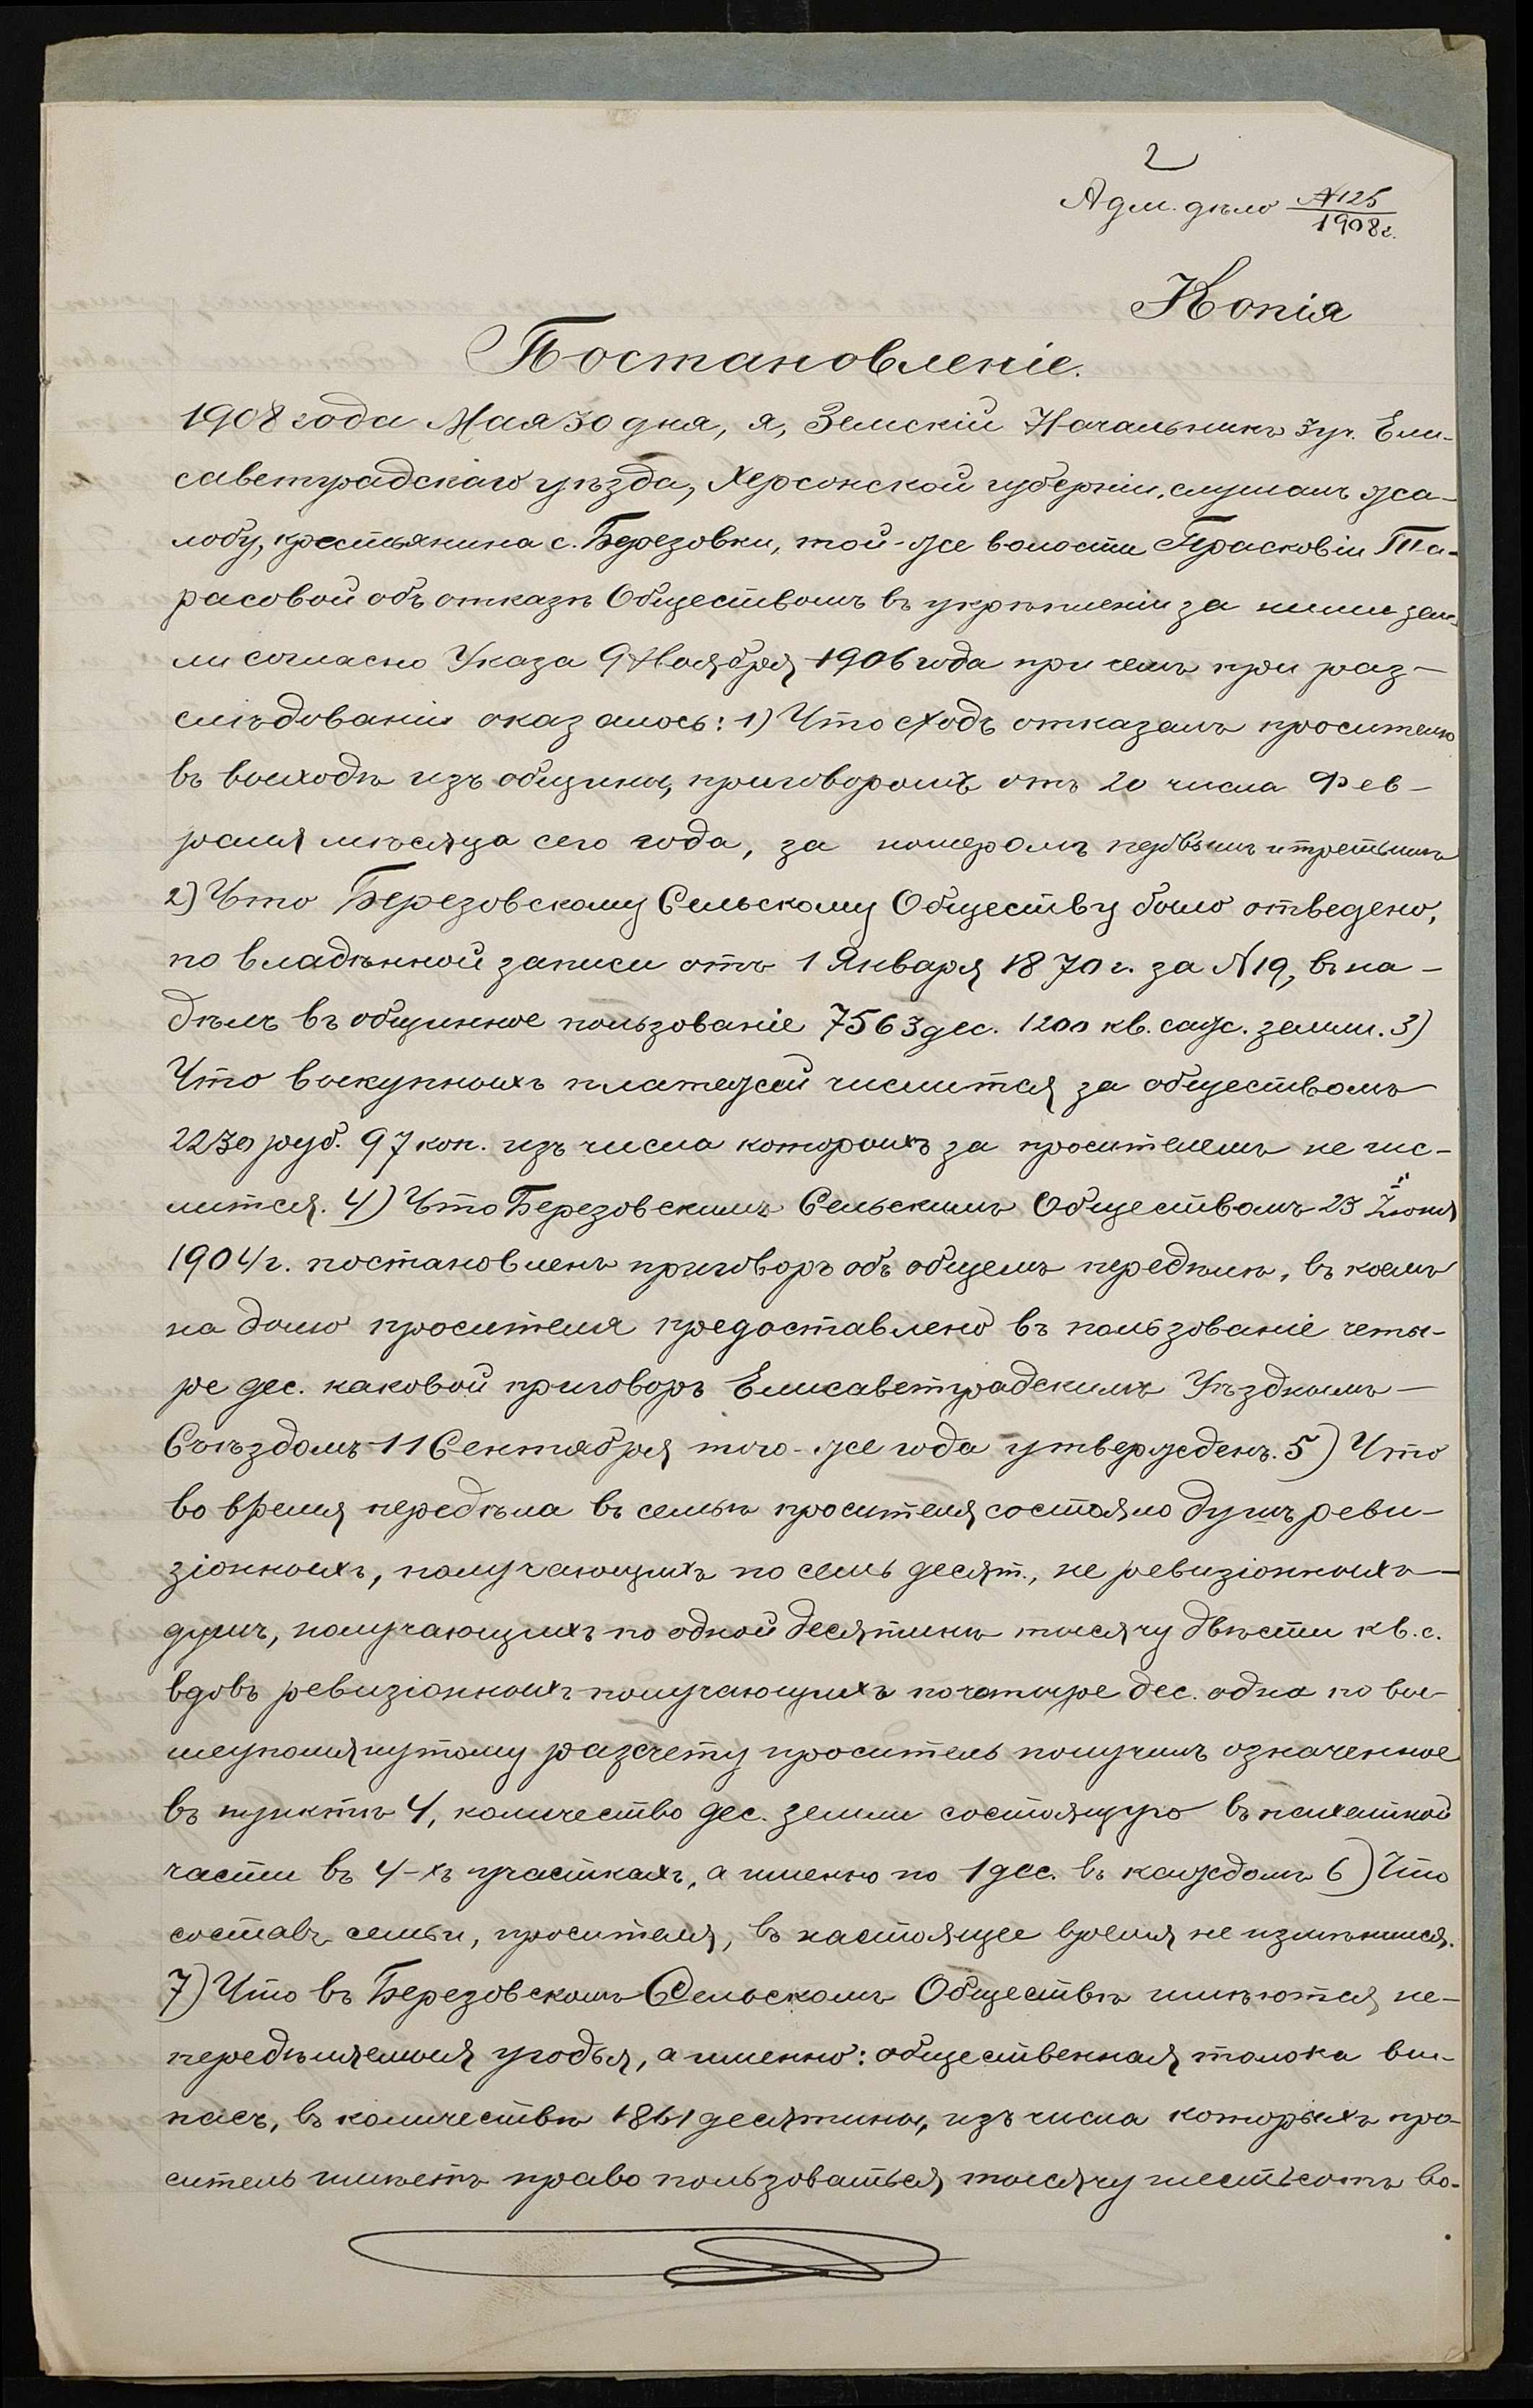 2
Адм. дѣло №125
1908г.
Копія
Постановленіе.
1908 года Мая 30 дня, я, Земскій Начальникъ 3 уч. Ели-
саветградскаго уѣзда, Херсонской губерніи, слушалъ жа-
лобу, крестьянина с. Березовки, той-же волости Прасковіи Та-
расовой объ отказѣ Обществомъ въ укрѣпленіи за ними зем-
ли согласно Указа 9 Ноября 1906 года при чемъ при раз-
слѣдованіи оказалось: 1) Что сходъ отказалъ просителю
въ выходѣ изъ общины, приговоромъ отъ 20 числа Фев-
раля мѣсяца сего года, за номеромъ первымъ и третьимъ
2) Что Березовскому Сельскому Обществу было отведено,
по владѣнной записи отъ 1 Января 1870 г. за №19, въ на-
дѣлъ въ общинное пользованіе 7563 дес. 1200 кв. саж. земли. 3)
Что выкупныхъ платежей числится за обществомъ
2230 руб. 97 коп. изъ числа которыхъ за просителемъ не чис-
лится. 4) Что Березовскимъ Сельскимъ Обществомъ 23 Іюня
1904 г. постановленъ приговоръ объ общемъ передѣлѣ, въ коемъ
на долю просителя предоставлено въ пользованіе четы-
ре дес. каковой приговоръ Елисаветградскимъ Уѣзднымъ —
Съѣздомъ 11 Сентября того-же года утвержденъ. 5) Что
во время передѣла въ семьѣ просителя состояло душъ реви-
зіонныхъ, получающихъ по семь десят., не ревизіонныхъ —
душъ, получающихъ по одной десятинѣ тысячу двѣсти кв. с.
вдовъ ревизіонныхъ получающихъ по четыре дес. одна по вы-
шеупомянутому разсчету проситель получилъ означенное
въ пунктѣ 4, количество дес. земли состоящую въ пахатной
части въ 4-хъ участкахъ, а именно по 1 дес. въ каждомъ 6) Что
составъ семьи, просителя, въ настоящее время не измѣнился.
7) Что въ Березовскомъ Сельскомъ Обществѣ имѣются не-
передѣляемыя угодья, а именно: общественная толока вы-
пасъ, въ количествѣ 1861 десятины, изъ числа которыхъ про-
ситель имѣетъ право пользоваться тысячу шестьсотъ во-